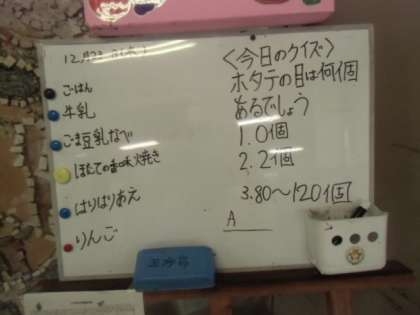 12月23日(木)
ごはん
牛乳
ごま豆乳なべ
ほたての香味焼き
はりはりあえ
りんご
<今日のクイズ>
ホタテの目は何個
あるでしょう
1.0個
2.2個
3.80〜120個
A